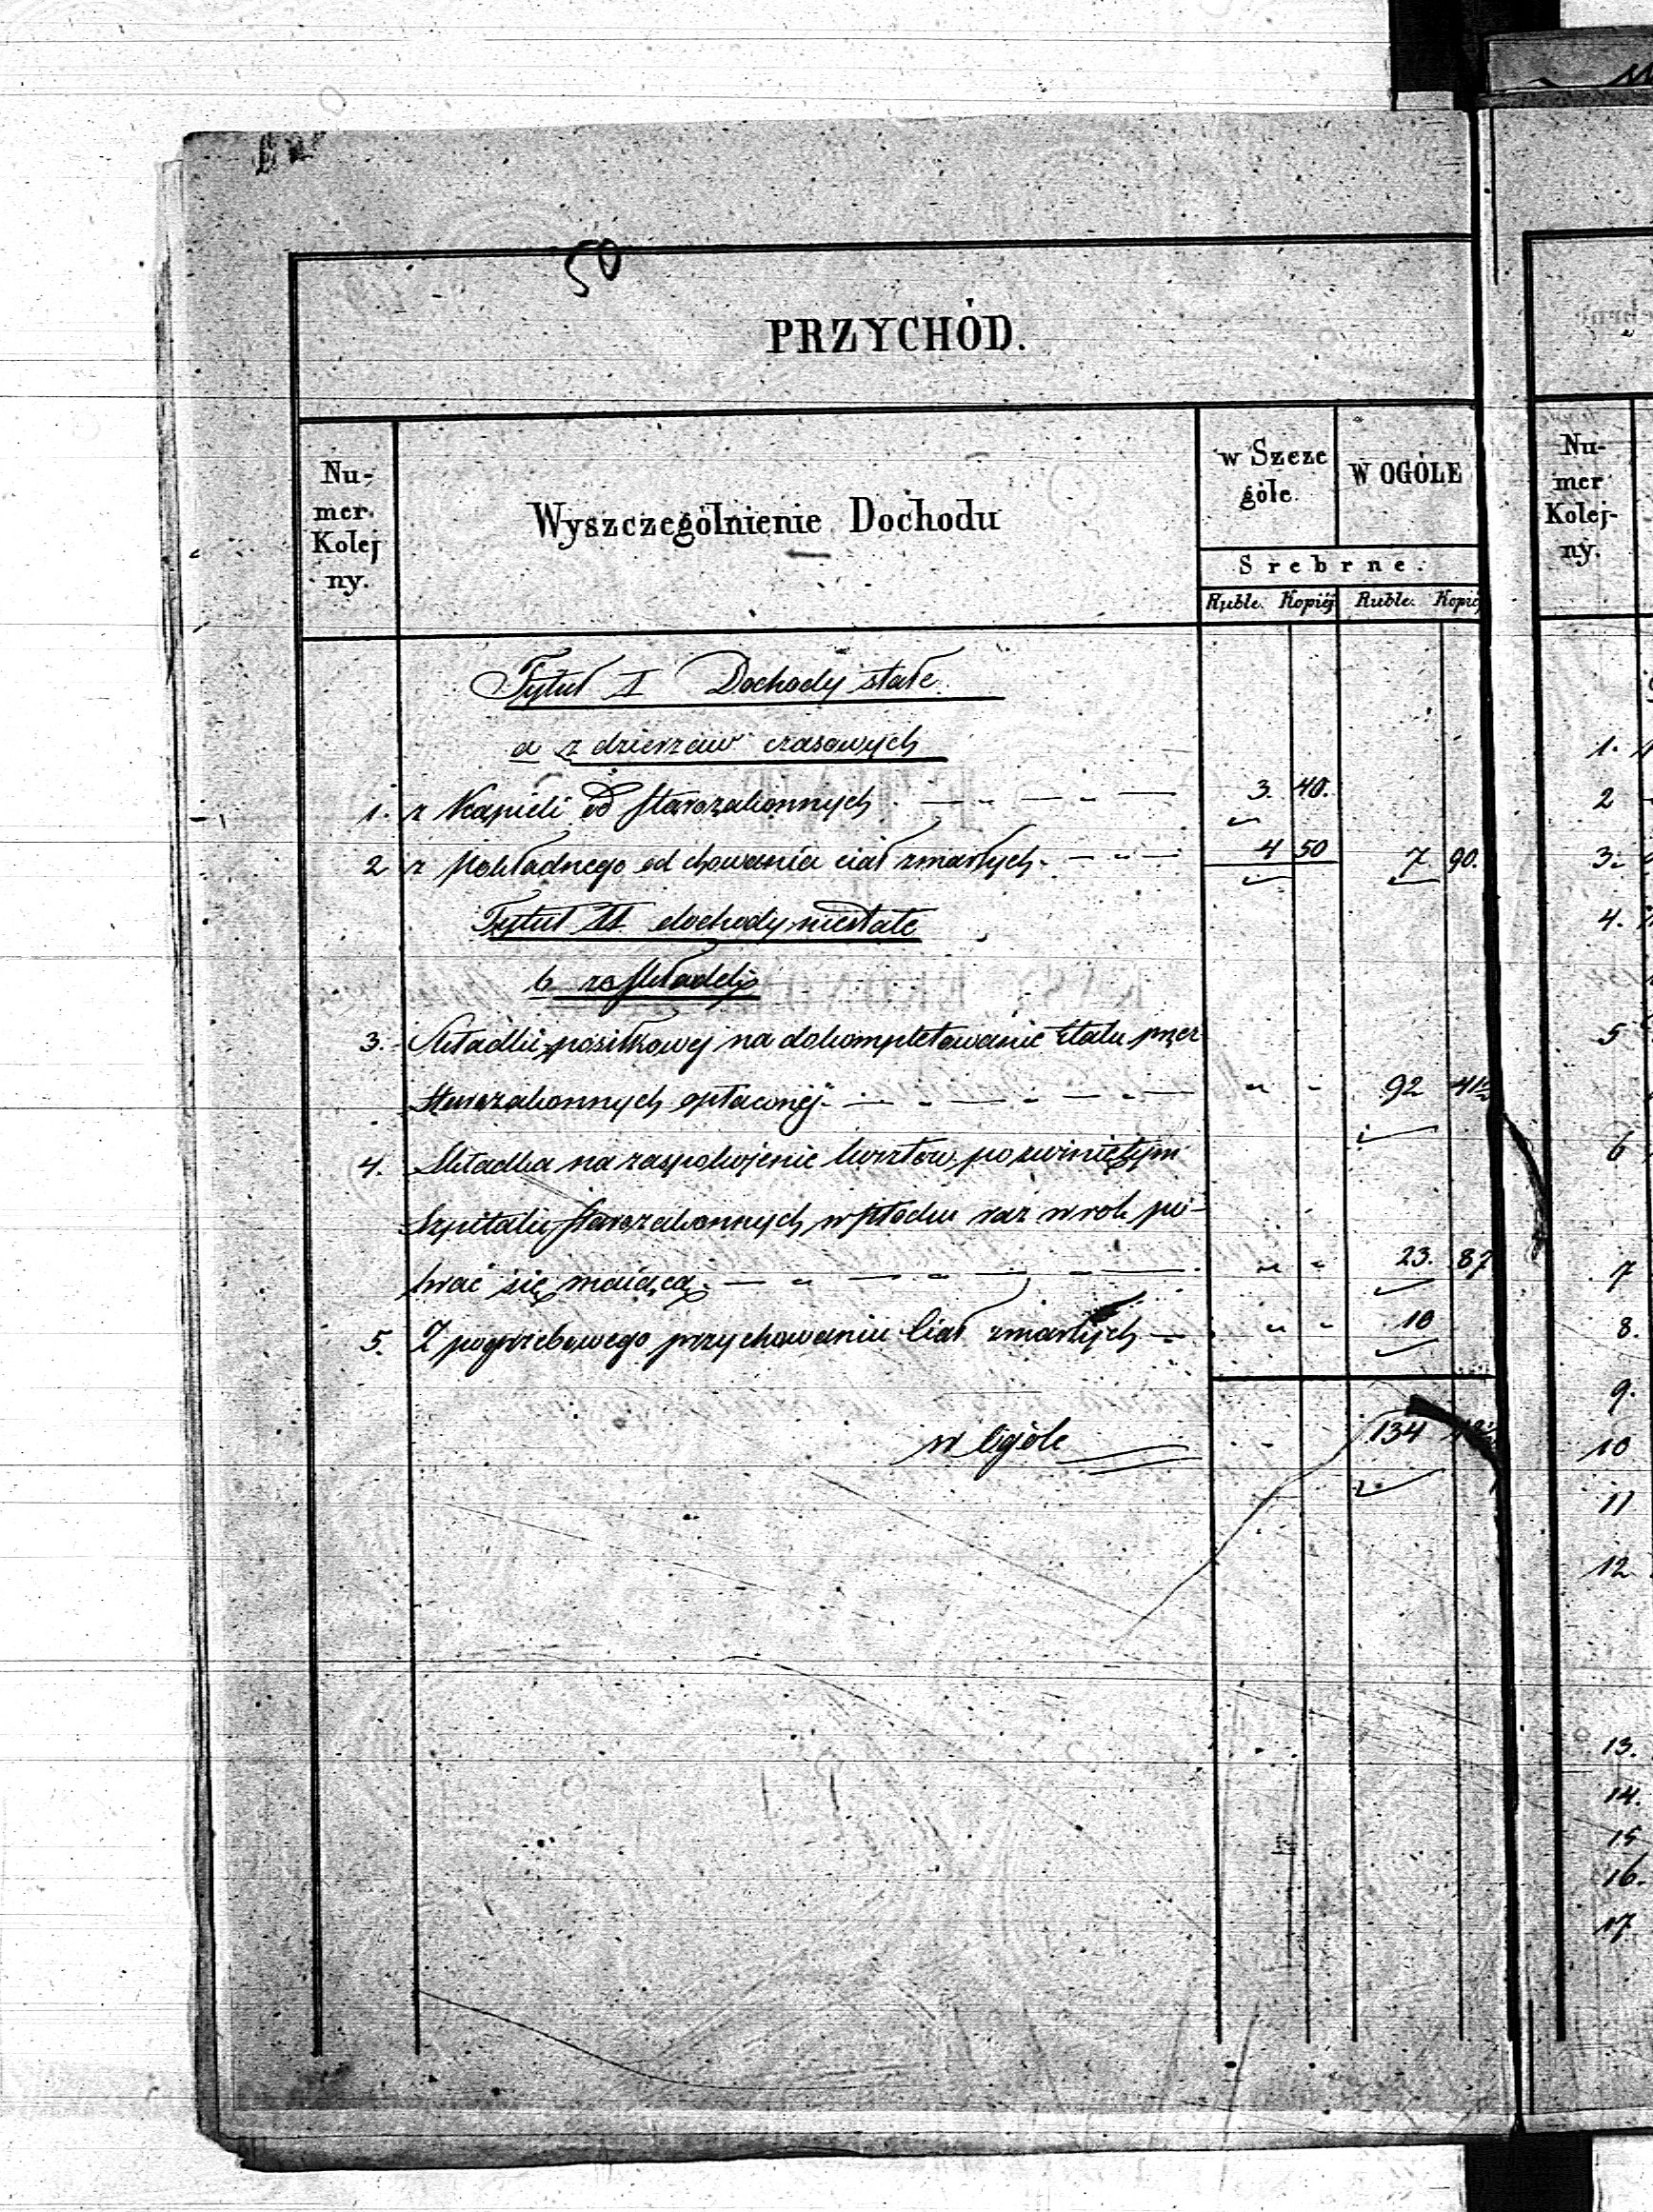 50
PRZYCHÓD.
Nu-
mer.
Kolej
ny.
Wyszczególnienie Dochodu
w Szcze
góle.
W OGÓLE
Srebrne.
Ruble. Kopiej Ruble. Kopiej
Tytuł I Dochody stałe
a z dzierzaw czasowych
1. z Kąpieli od starozakonnych 3. 40.
2 z Pokładnego od chowania ciał zmarłych 4 50 7 90.
Tytuł II dochody niestałe
b ze składek
3. Składki posiłkowej na dokompletowanie Etatu przez
Starozakonnych opłaconéj 92 41
4. Składka na zaspokojenie kosztów po zwiniętym
Szpitalu Starozakonnych w Płocku raz w rok po-
brać się maiąca 23. 87
5. Z pogrzebowego przy chowaniu Ciał zmarłych 10
w Ogóle 134
Nu-
mer
Kolej-
ny.
1.
2
3.
4.
5
6
7
8.
9.
10
11
12
13.
14.
15
16.
17.